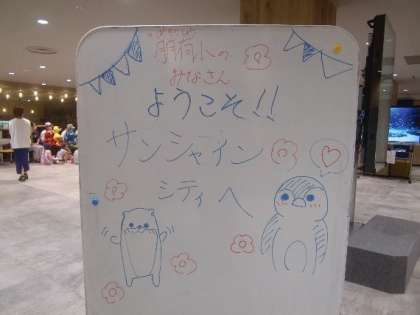 みなさん
ようこそ!!
サンシャイン
シティへ